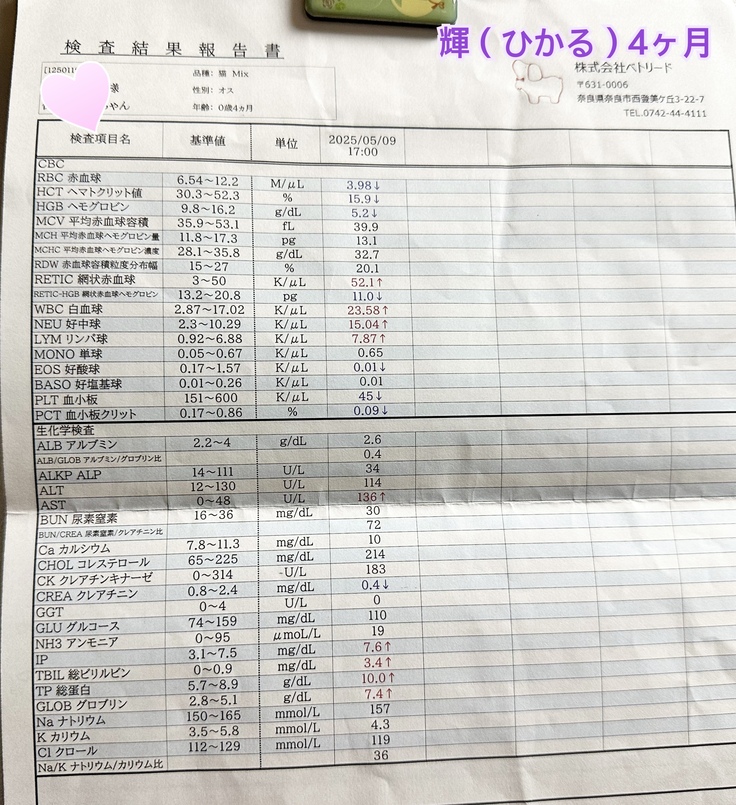 輝(ひかる)4ヶ月
検査結果報告書
様
ちゃん
品種: 猫 Mix
性別: オス
年齢: 0歳4ヵ月
株式会社ベトリード
〒631-0006
奈良県奈良市西登美ケ丘3-22-7
TEL.0742-44-4111
検査項目名 基準値 単位 2025/05/09 17:00
CBC
RBC 赤血球 6.54～12.2 M/μL 3.98↓
HCT ヘマトクリット値 30.3～52.3 % 15.9↓
HGB ヘモグロビン 9.8～16.2 g/dL 5.2↓
MCV 平均赤血球容積 35.9～53.1 fL 39.9
MCH 平均赤血球ヘモグロビン量 11.8～17.3 pg 13.1
MCHC 平均赤血球ヘモグロビン濃度 28.1～35.8 g/dL 32.7
RDW 赤血球容積粒度分布幅 15～27 % 20.1
RETIC 網状赤血球 3～50 K/μL 52.1↑
RETIC-HGB 網状赤血球ヘモグロビン 13.2～20.8 pg 11.0↓
WBC 白血球 2.87～17.02 K/μL 23.58↑
NEU 好中球 2.3～10.29 K/μL 15.04↑
LYM リンパ球 0.92～6.88 K/μL 7.87↑
MONO 単球 0.05～0.67 K/μL 0.65
EOS 好酸球 0.17～1.57 K/μL 0.01↓
BASO 好塩基球 0.01～0.26 K/μL 0.01
PLT 血小板 151～600 K/μL 45↓
PCT 血小板クリット 0.17～0.86 % 0.09↓
生化学検査
ALB アルブミン 2.2～4 g/dL 2.6
ALB/GLOB アルブミン/グロブリン比 0.4
ALKP ALP 14～111 U/L 34
ALT 12～130 U/L 114
AST 0～48 U/L 136↑
BUN 尿素窒素 16～36 mg/dL 30
BUN/CREA 尿素窒素/クレアチニン比 72
Ca カルシウム 7.8～11.3 mg/dL 10
CHOL コレステロール 65～225 mg/dL 214
CK クレアチンキナーゼ 0～314 U/L 183
CREA クレアチニン 0.8～2.4 mg/dL 0.4↓
GGT 0～4 U/L 0
GLU グルコース 74～159 mg/dL 110
NH3 アンモニア 0～95 μmoL/L 19
IP 3.1～7.5 mg/dL 7.6↑
TBIL 総ビリルビン 0～0.9 mg/dL 3.4↑
TP 総蛋白 5.7～8.9 g/dL 10.0↑
GLOB グロブリン 2.8～5.1 g/dL 7.4↑
Na ナトリウム 150～165 mmol/L 157
K カリウム 3.5～5.8 mmol/L 4.3
Cl クロール 112～129 mmol/L 119
Na/K ナトリウム/カリウム比 36